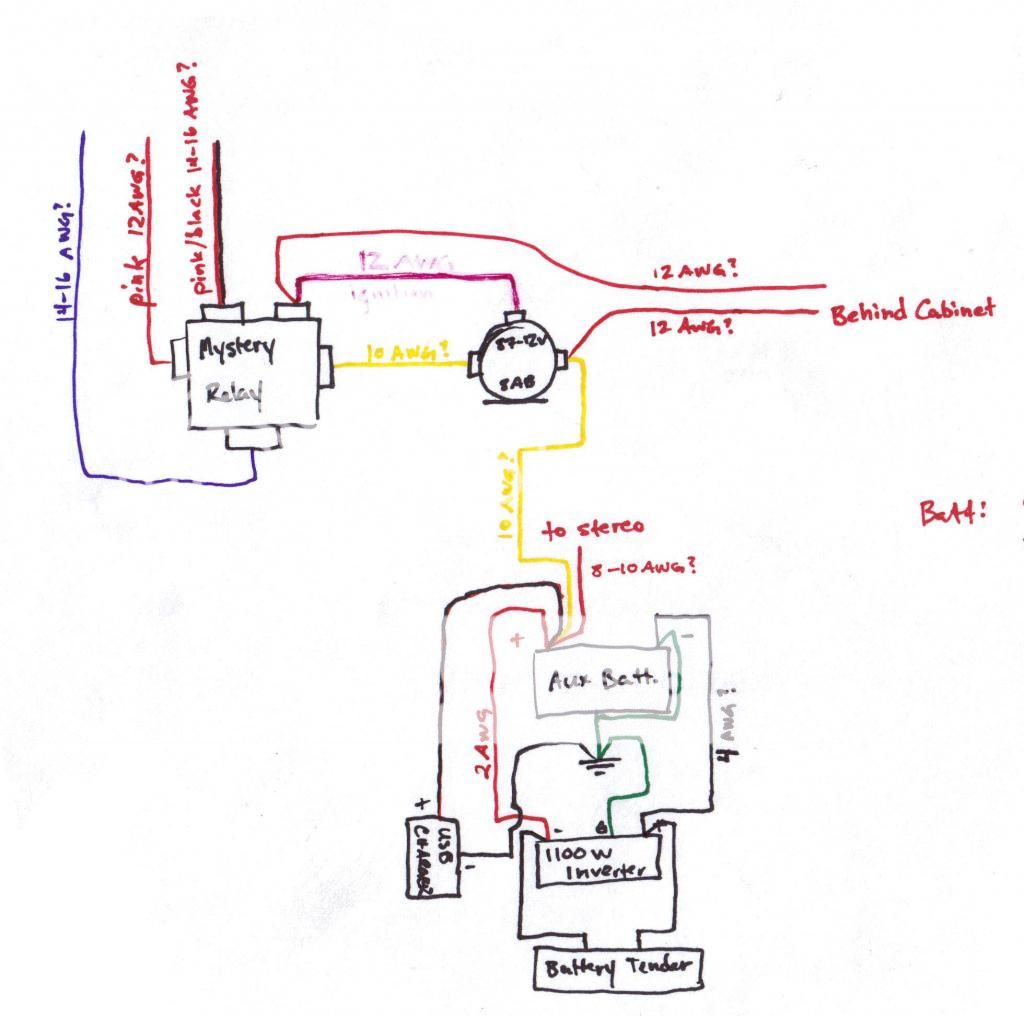 pink/black 14-16 AWG?
pink 12AWG?
14-16 AWG?
12 AWG
ignition
12 AWG?
Behind Cabinet
12 AWG?
Mystery
Relay
10 AWG?
87-12V
8AB
10 AWG?
to stereo
8-10 AWG?
Batt:
+
-
Aux Batt.
2AWG
4 AWG?
+
USB
CHARGER
-
-
G
+
1100W
Inverter
Battery Tender